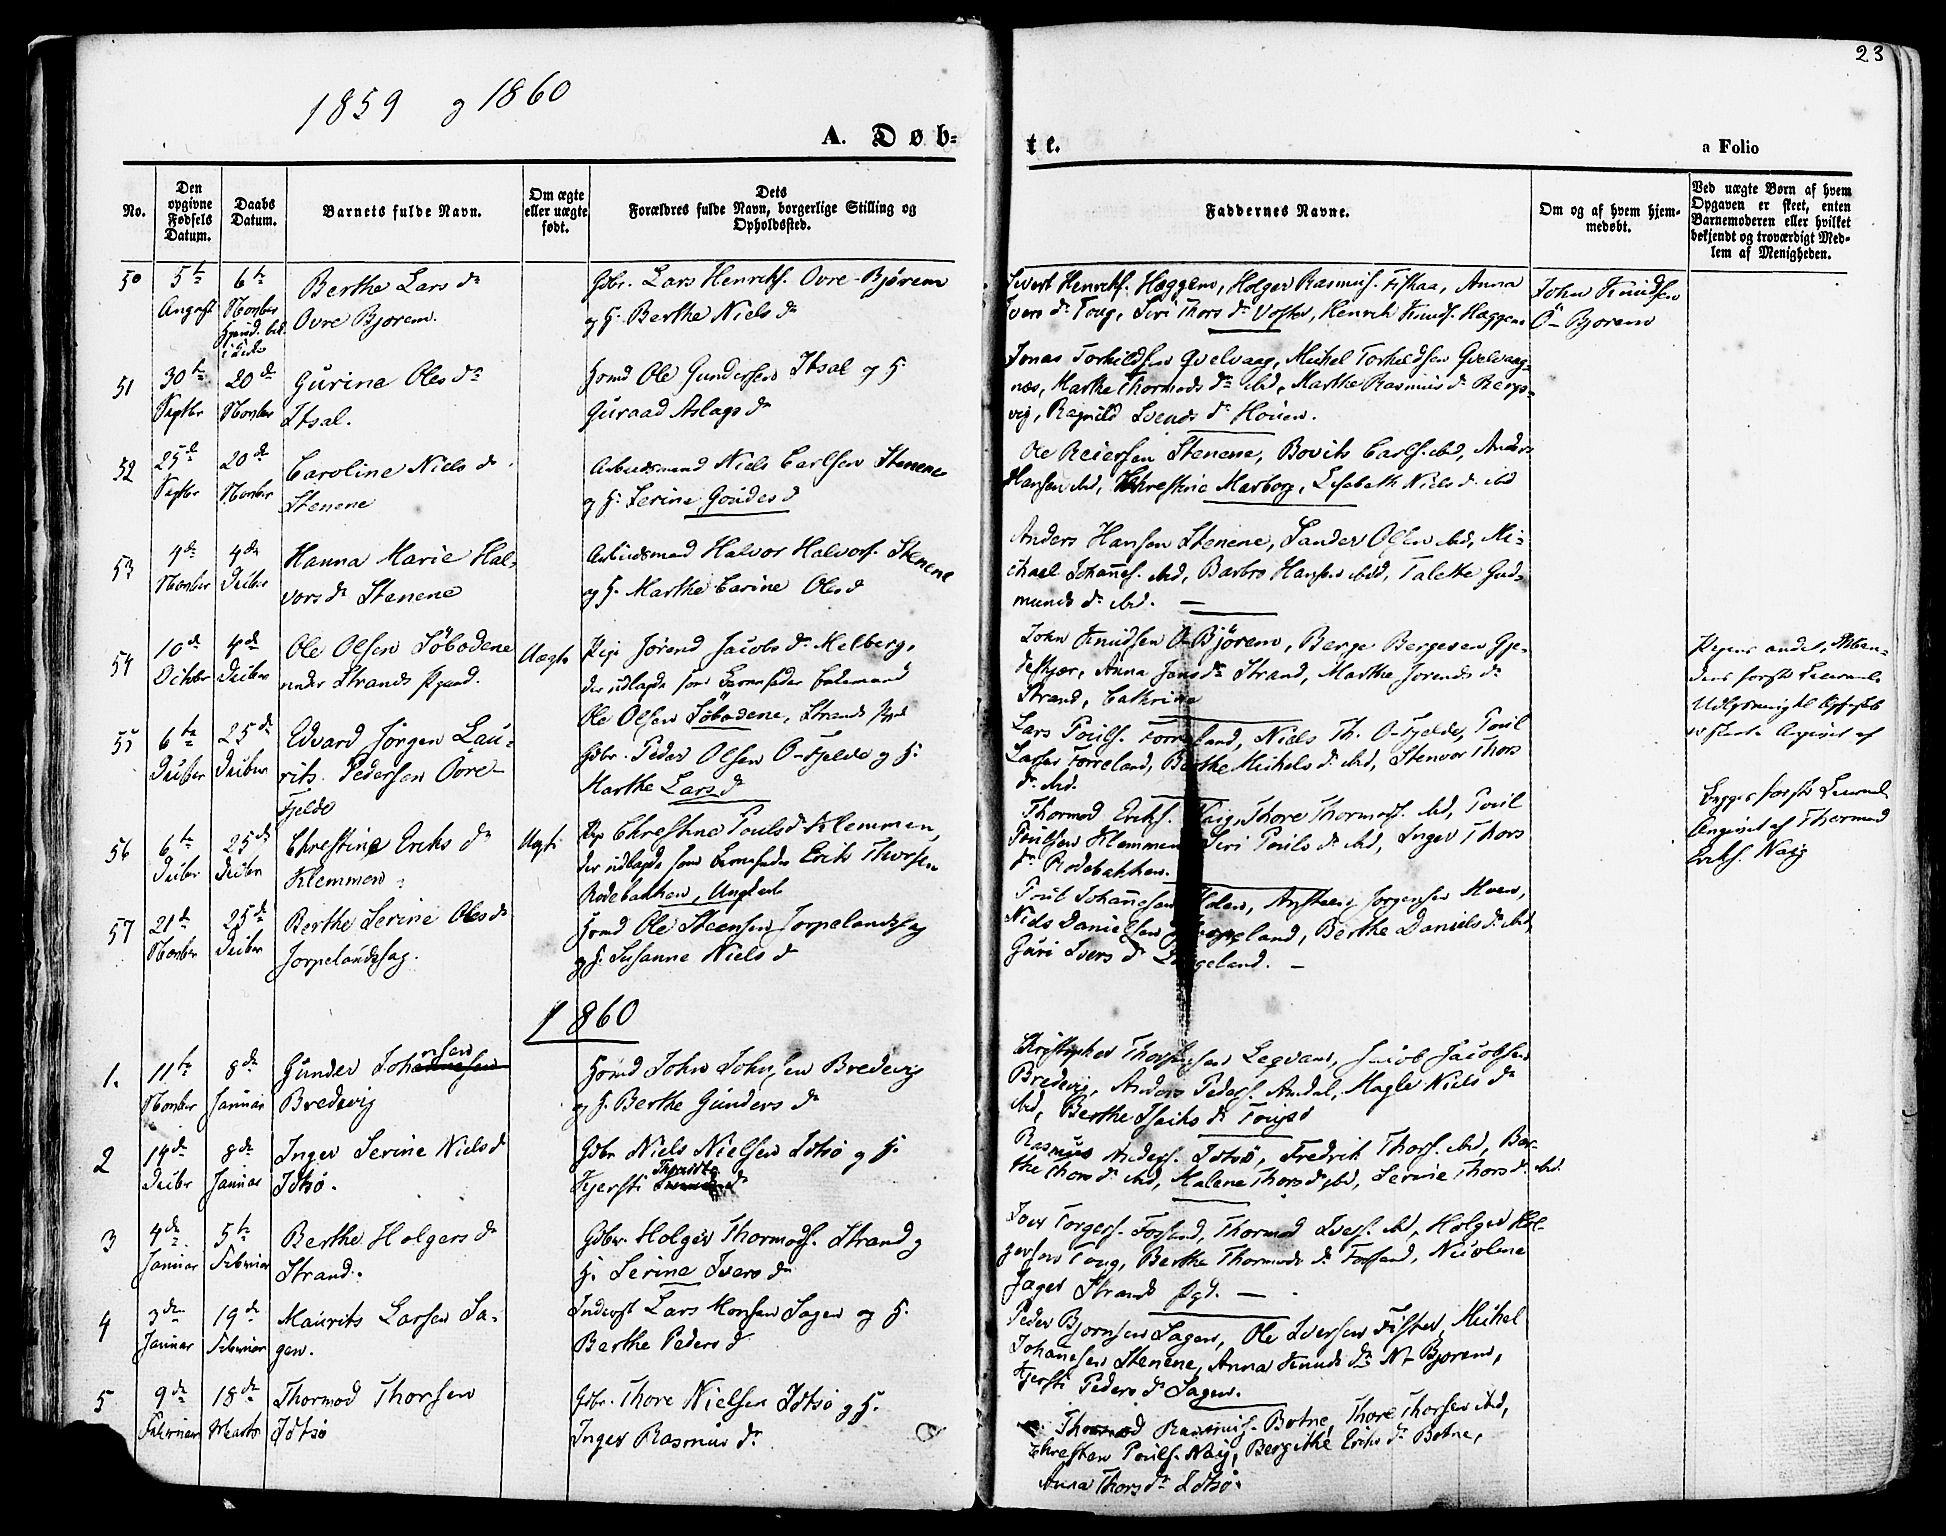 1859 og 1860
23
A. Døb-
te.
a Folio
No.
Den opgivne Fødsels Datum.
Daabs Datum.
Barnets fulde Navn.
Om ægte eller uægte født.
Dets Forældres fulde Navn, borgerlige Stilling og Opholdssted.
Faddernes Navne.
Om og af hvem hjemmedøbt.
Ved uægte Børn af hvem Opgaven er skeet, enten Barnemoderen eller hvilket bekjendt og troværdigt Medlem af Menigheden.
50
5te August
6te Novbr
Berthe Lars dr
Ovre Bjørem.
Gdbr. Lars Henriks. Ovre-Bjørem
og H. Berthe Niels dr
Sivert Henriks. Heggem, Holger Rasmus. Fiskaa, Anna
Ivers dr Toug, Siri Thors dr Voster, Henrik Knuds. Heggem
John Knudsen
Ö-Bjørem
51
30te Septbr
20de Novbr
Gurine Oles dr
Itsal.
Hsmd Ole Gundersen Itsal og H.
Guraad Aslags dr
Jonas Torkildsen Qvelvaag, Mickel Torkildsen Qvelvaag-
næs, Marthe Thormods dr ibd, Marthe Rasmus dr Bergs-
vig, Ragnild Svends dr Houen.
52
25de Septbr
20de Novbr
Caroline Niels dr
Stenene
Arbeidsmand Niels Carlsen Stenene
og H. Serine Gouders d
Ole Reiersen Stenene, Bovits Carls. ibd, Anders
Hansen ibd, Christine Marborg, Lisabeth Niels d. ibd
53
4de Novbr
4de Decbr
Hanna Marie Hal-
vors dr Stenene
Arbeidsmand Halvor Halvors. Stenene
og H. Marthe Carine Oles d
Anders Hansen Stenene, Sander Olsen ibd, Mi-
chael Johannes. ibd, Barbro Hansen ibid, Talette Gud-
munds dr ibd. —
54
10de Octbr
4de Decbr
Ole Olsen Söbodene
under Strands Pgand.
Uægte
Pige Jørend Jacobs dr Melberg,
der udlagde som Barnefader
Ole Olsen Söbodene, Strands
John Knudsen O-Bjørem, Berge Bergesen Gje-
deskjær, Anna Jons dr Strand, Marthe Jorends dr
Strand, Cathrine
Pigens andet,
55
6te Decbr
25de Decbr
Edvard Jörgen Lau-
rits Pedersen Ovre-
Fjelde
Gdbr. Peder Olsen O-Fjelde og H.
Marthe Lars d
Lars Pouls. Forreland, Niels Th. O-Fjelde, Poul
Larsen Forreland, Berthe Mickels dr ibd, Stenvor Thors
dr ibd.
56
6te Decbr
25de Decbr
Christine Eriks dr
Klemmen
Uægte
Pige Christine Pouls d Klemmen,
der udlagde som Barnefader Erik Thorsen
Rodebakken, Ungkarl
Thormod Eriks. Waig, Thore Thormods. ibd, Poul
Poulsen Klemmen, Siri Pouls dr ibd, Inger Thors
dr Rodebakken.
Angivet af Thormod
Eriks. Waig
57
21de Novbr
25de Decbr
Berthe Serine Oles dr
Jorpelandssag.
Hsmd Ole Steensen Jorpelandssag
og H. Susanne Niels d
Poul Johannesen Holen, Jørgensen Moen,
Niels Danielsen Jorpeland, Berthe Daniels dr ibd,
Guri Ivers dr Langeland. —
1860
1.
11te Novbr
8de Januar
Gunder Johnsen
Bredevig
Hsmd John Johnsen Bredevig
og H. Berthe Gunders dr
Christopher Legvam, Jacob Jacobsen
Bredevig, Anders Peders. Amdal, Magle Niels dr
ibd, Berthe Isaks dr Tougsö
2
14de Decbr
8de Januar
Inger Serine Niels d
Idtsø.
Gdbr. Niels Nielsen Idtsø og H.
Kjersti
Rasmus Idtsö, Fredrik Thors. ibd, Ber-
the Thors dr ibd, Malene Thors dr ibd, Serine Thors dr ibd.
3
4de Januar
5te Februar
Berthe Holgers dr
Strand.
Gdbr. Holger Thormods. Strand og
H. Serine Ivers dr
Iver Torgers. Fossand, Thormod Ivers. ibd, Holger Hol-
gersen Toug, Berthe Thormods dr Fossand, Nicoline
Jager Strands Pgd. —
4
3de Januar
19de Februar
Maurits Larsen Sa-
gen.
Inderst Lars Monsen Sagen og H.
Berthe Peders d
Peder Bjornsen Sagen, Ole Iversen Fister, Mickel
Johannesen Stenene, Anna Knuds dr N-Bjorem,
Kjersti Peders dr Sagen.
5
9de Februar
18de Marts
Thormod Thorsen
Idtsø
Gdbr. Thore Nielsen Idtsø og H.
Inger Rasmus dr
Thormod Rasmus. Botne, Thore Thorsen ibd,
Christen Pouls. Waig, Bergithe Eriks dr Botne,
Anna Thors dr Idtsø.